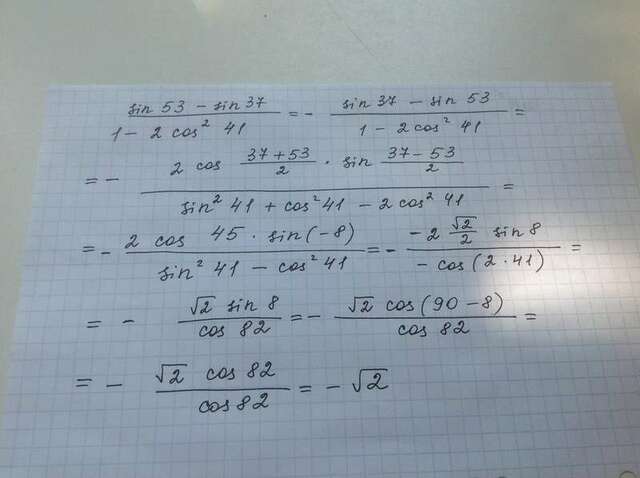 (sin 53 − sin 37)/(1 − 2 cos² 41) = − (sin 37 − sin 53)/(1 − 2 cos² 41) =
= − (2 cos (37+53)/2 · sin (37−53)/2)/(sin² 41 + cos² 41 − 2 cos² 41) =
= − (2 cos 45 · sin(−8))/(sin² 41 − cos² 41) = − (−2 √2/2 sin 8)/(−cos(2·41)) =
= − (√2 sin 8)/(cos 82) = − (√2 cos(90−8))/(cos 82) =
= − (√2 cos 82)/(cos 82) = − √2